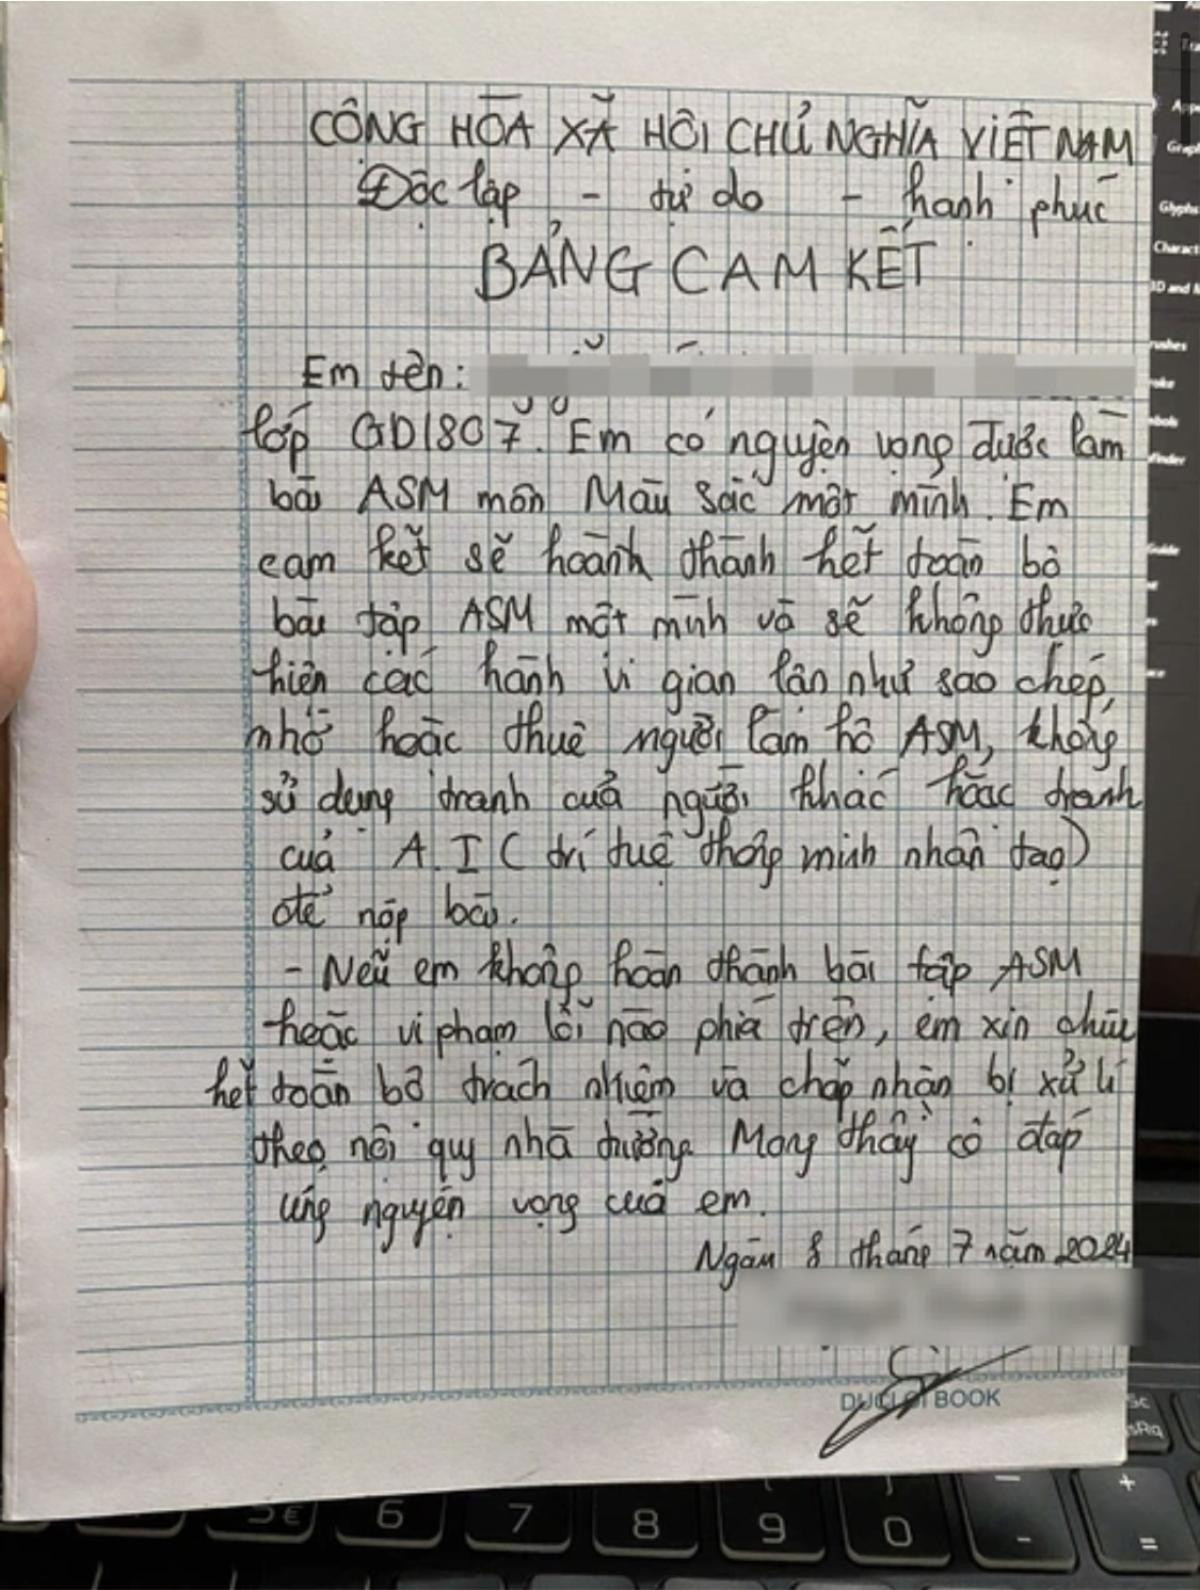 CỘNG HÒA XÃ HỘI CHỦ NGHĨA VIỆT NAM
Độc lập - tự do - hạnh phúc
BẢNG CAM KẾT
Em tên:
lớp GD1807. Em có nguyện vọng được làm
bài ASM môn Màu sắc một mình. Em
cam kết sẽ hoành thành hết toàn bộ
bài tập ASM một mình và sẽ không thực
hiện các hành vi gian lận như sao chép,
nhờ hoặc thuê người làm hộ ASM, không
sử dụng tranh của người khác hoặc tranh
của A.I (trí tuệ thông minh nhân tạo)
để nộp bài.
- Nếu em không hoàn thành bài tập ASM
hoặc vi phạm lỗi nào phía trên, em xin chịu
hết toàn bộ trách nhiệm và chấp nhận bị xử lí
theo nội quy nhà trường. Mong thầy cô đáp
ứng nguyện vọng của em.
Ngày 8 tháng 7 năm 2024
DUCLOI BOOK
6 7 8 9 0